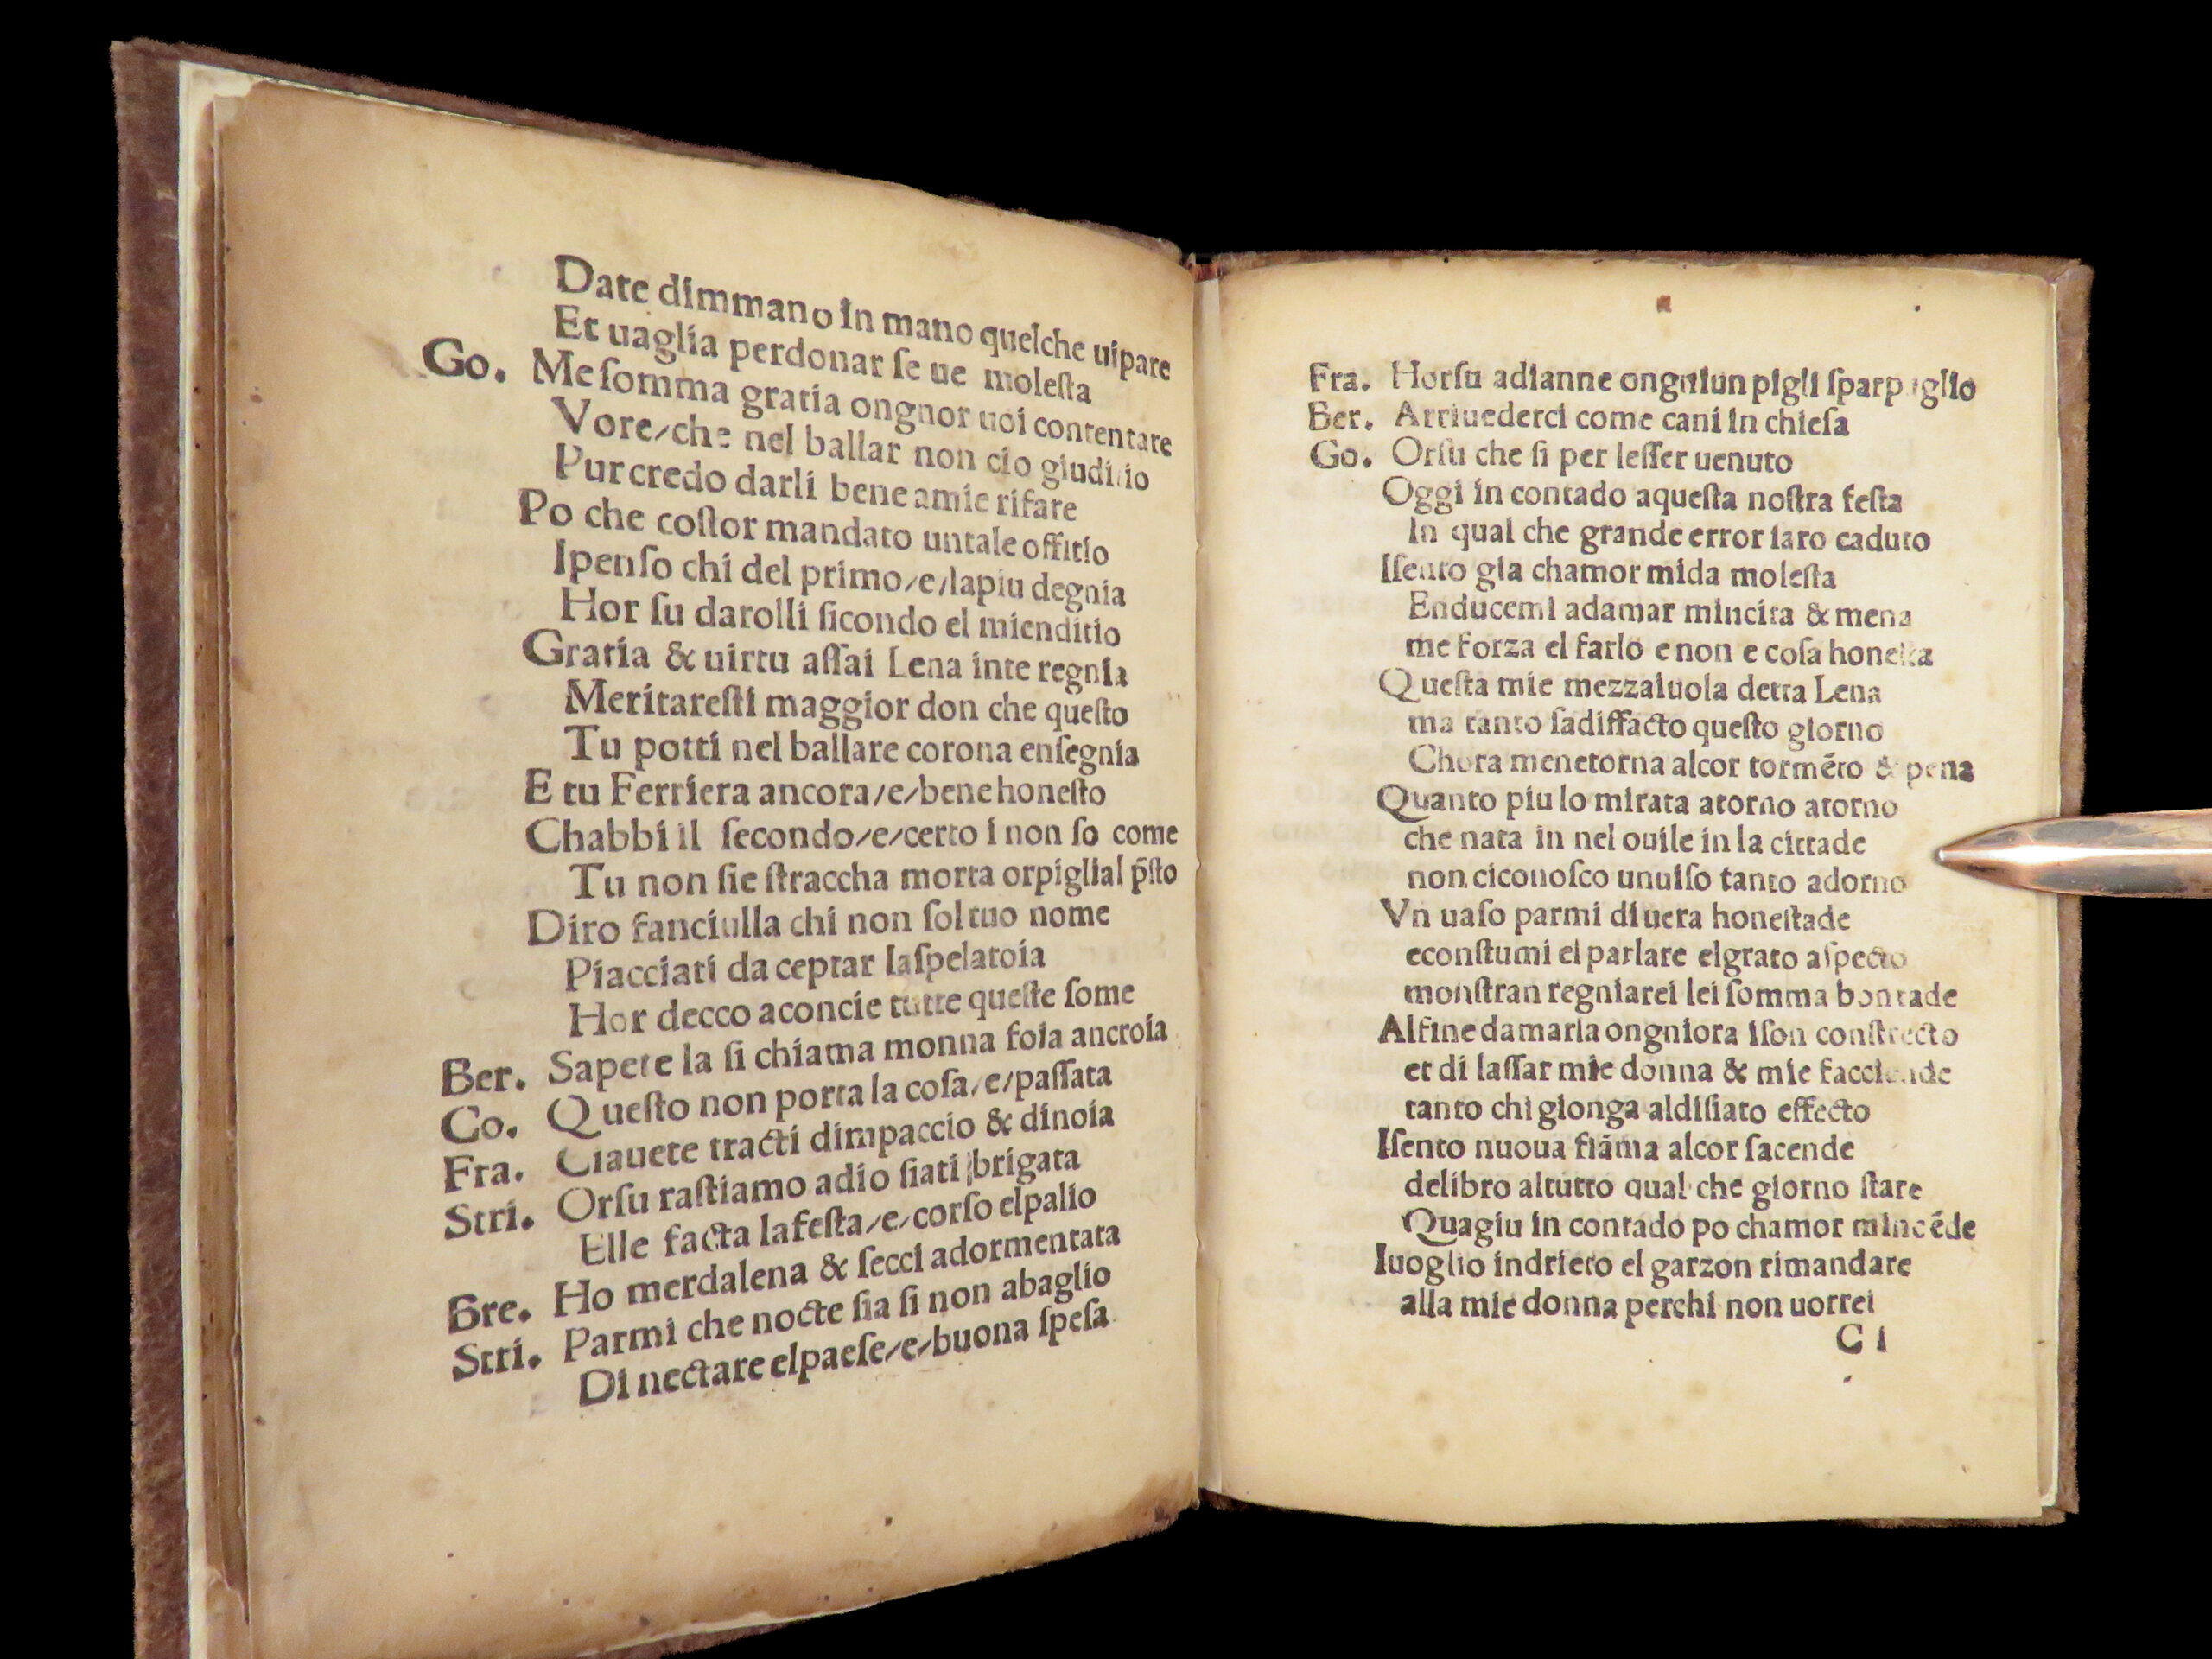 Date dimmano in mano quelche uipare
Et uaglia perdonar ſe ue moleſta
Go. Me ſomma gratia ongnor uoi contentare
Vore/che nel ballar non cio giuditio
Pur credo darli bene amie rifare
Po che coſtor mandato untale offitio
Ipenſo chi del primo/e/lapiu degnia
Hor ſu darolli ſicondo el mienditio
Gratia & uirtu aſſai Lena inte regnia
Meritareſti maggior don che queſto
Tu potti nel ballare corona enſegnia
E tu Ferriera ancora/e/bene honeſto
Chabbi il ſecondo/e/certo i non ſo come
Tu non ſie ſtraccha morta orpiglial p̄ſto
Diro fanciulla chi non ſol tuo nome
Piacciati da ceptar laſpelatoia
Hor decco aconcie tutte queſte ſome
Ber. Sapete la ſi chiama monna foia ancroia
Co. Queſto non porta la coſa/e/paſſata
Fra. Ciauete tracti dimpaccio & dinoia
Stri. Orſu raſtiamo adio ſiati brigata
Elle facta lafeſta/e/corſo elpalio
Bre. Ho merdalena & ſecci adormentata
Stri. Parmi che nocte ſia ſi non abaglio
Di nectare elpaeſe/e/buona ſpeſa
Fra. Horſu adianne ongniun pigli
Ber. Arriuederci come cani in chieſa
Go. Orſu che ſi per leſſer uenuto
Oggi in contado aqueſta noſtra feſta
In qual che grande error iaro caduto
Iſento gia chamor mida moleſta
Enducemi adamar mincita & mena
me forza el farlo e non e coſa honeſta
Queſta mie mezzaiuola detta Lena
ma tanto ſadiffacto queſto giorno
Chora menetorna alcor tormēto & pena
Quanto piu lo mirata atorno atorno
che nata in nel ouile in la cittade
non ciconoſco unuiſo tanto adorno
Vn uaſo parmi di uera honeſtade
econſtumi el parlare elgrato aſpecto
monſtran regniarei lei ſomma bontade
Alfine damarla ongniora iſon conſtrecto
et di laſſar mie donna & mie facciende
tanto chi gionga aldiſiato effecto
Iſento nuoua fiāma alcor ſacende
delibro altutto qual che giorno ſtare
Quagiu in contado po chamor mincēde
Iuoglio indrieto el garzon rimandare
alla mie donna perchi non uorrei
C i